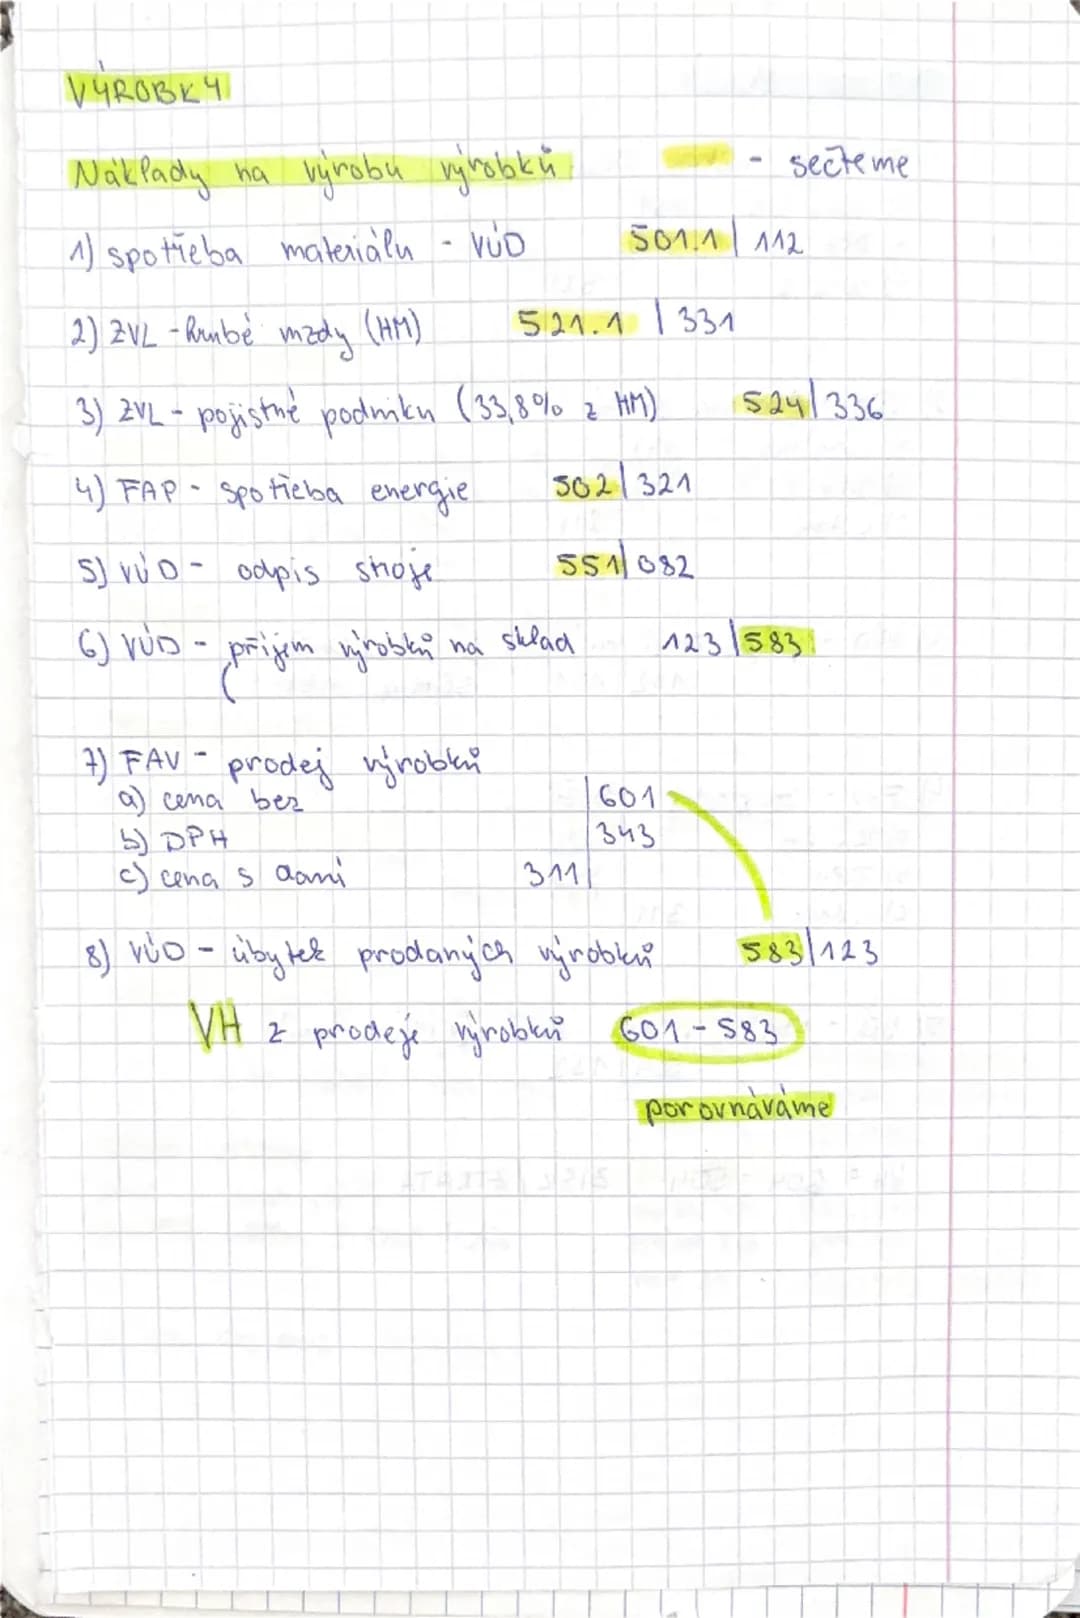 VÝROBKY
Náklady na výrobu výrobků - sečteme
1) spotřeba materiálu - VÚD 501.1 | 112
2) ZVL - hrubé mzdy (HM) 521.1 | 331
3) ZVL - pojistné podniku (33,8% z HM) 524 | 336
4) FAP - spotřeba energie 502 | 321
5) VÚD - odpis stroje 551 | 082
6) VÚD - příjem výrobků na sklad 123 | 583
7) FAV - prodej výrobků
a) cena bez | 601
b) DPH | 343
c) cena s daní 311 |
8) VÚD - úbytek prodaných výrobků 583 | 123
VH z prodeje výrobků 601 - 583
porovnáváme